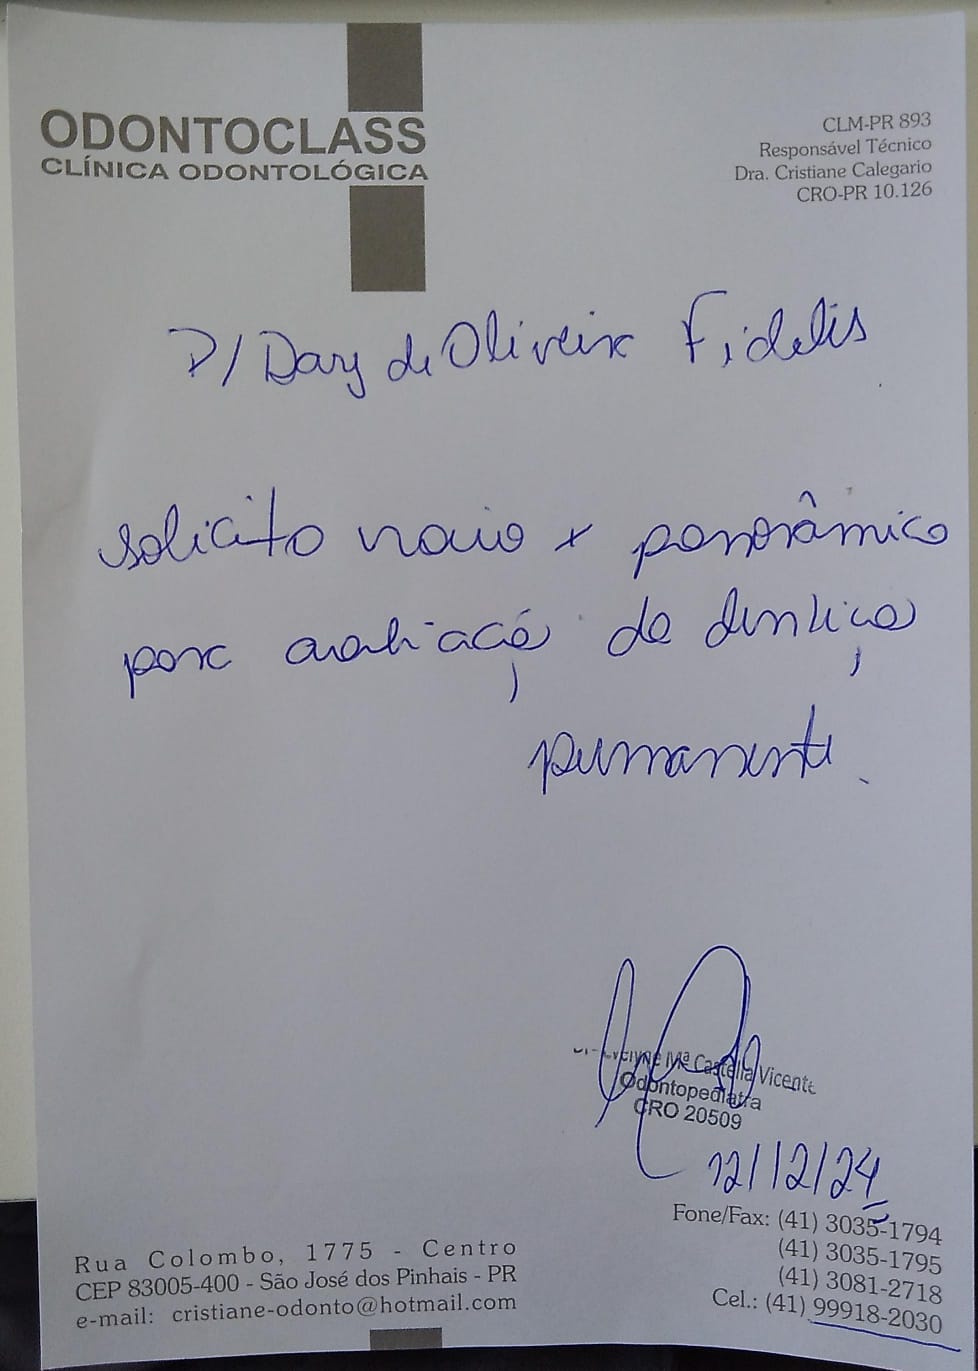 ODONTOCLASS
CLÍNICA ODONTOLÓGICA
CLM-PR 893
Responsável Técnico
Dra. Cristiane Calegario
CRO-PR 10.126
P/ Davy de Oliveira Fidelis
solicito raio x panorâmico
para avaliação da dentição
permanente.
Mª Castella Vicente
Odontopediatra
CRO 20509
12/12/24
Fone/Fax: (41) 3035-1794
(41) 3035-1795
(41) 3081-2718
Cel.: (41) 99918-2030
Rua Colombo, 1775 - Centro
CEP 83005-400 - São José dos Pinhais - PR
e-mail: cristiane-odonto@hotmail.com